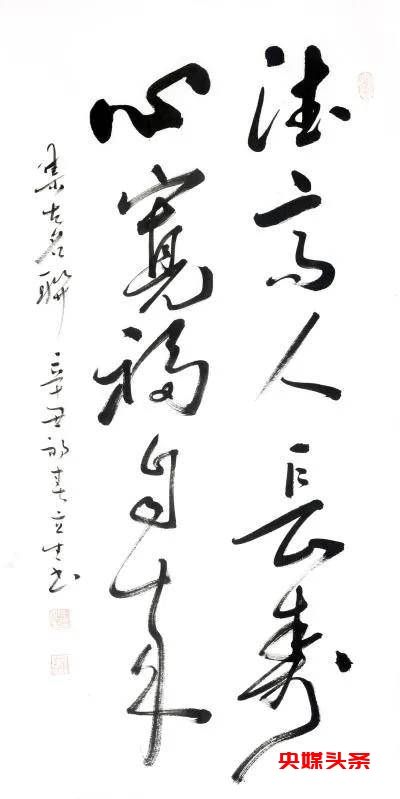 德高人長壽
心寬福自来
集古名聯 辛丑初春立生书
央媒头条